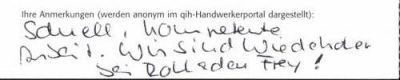 Ihre Anmerkungen (werden anonym im qih-Handwerkerportal dargestellt):
Schnell, kompetente
Arbeit. Wir sind Wiederholer
bei Rolladen Frey!